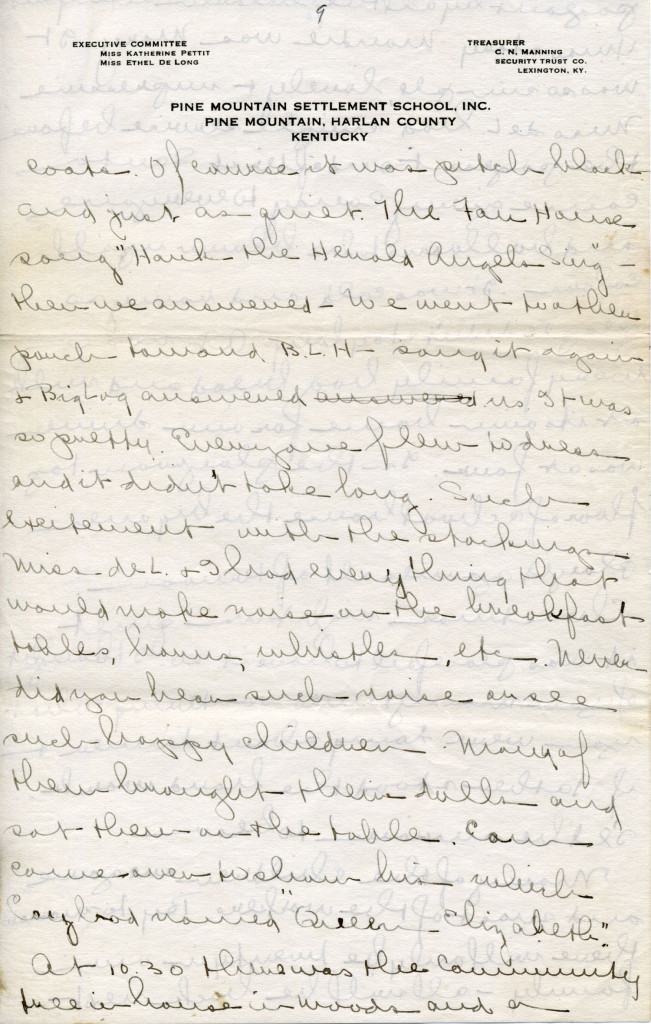 9
EXECUTIVE COMMITTEE
MISS KATHERINE PETTIT
MISS ETHEL DE LONG
TREASURER
C. N. MANNING
SECURITY TRUST CO.
LEXINGTON, KY.
PINE MOUNTAIN SETTLEMENT SCHOOL, INC.
PINE MOUNTAIN, HARLAN COUNTY
KENTUCKY
coats. Of course it was pitch black
and just as quiet. The Far House
sang "Hark the Herald Angels Sing" -
then we answered - We went to other
porch toward B.L.H - sang it again
& Big Log answered answered us. It was
so pretty. Everyone flew to dress
and it didn't take long. Such
excitement with the stockings
Miss de L. & I had every thing that
would make noise on the breakfast
tables, horns, whistles, etc. Never
did you hear such noise or see
such happy children. Many of
them brought their dolls and
sat them on the table.
came over to show his which
had named "Queen Elizabeth".
At 10.30 there was the Community
tree in house in woods and a